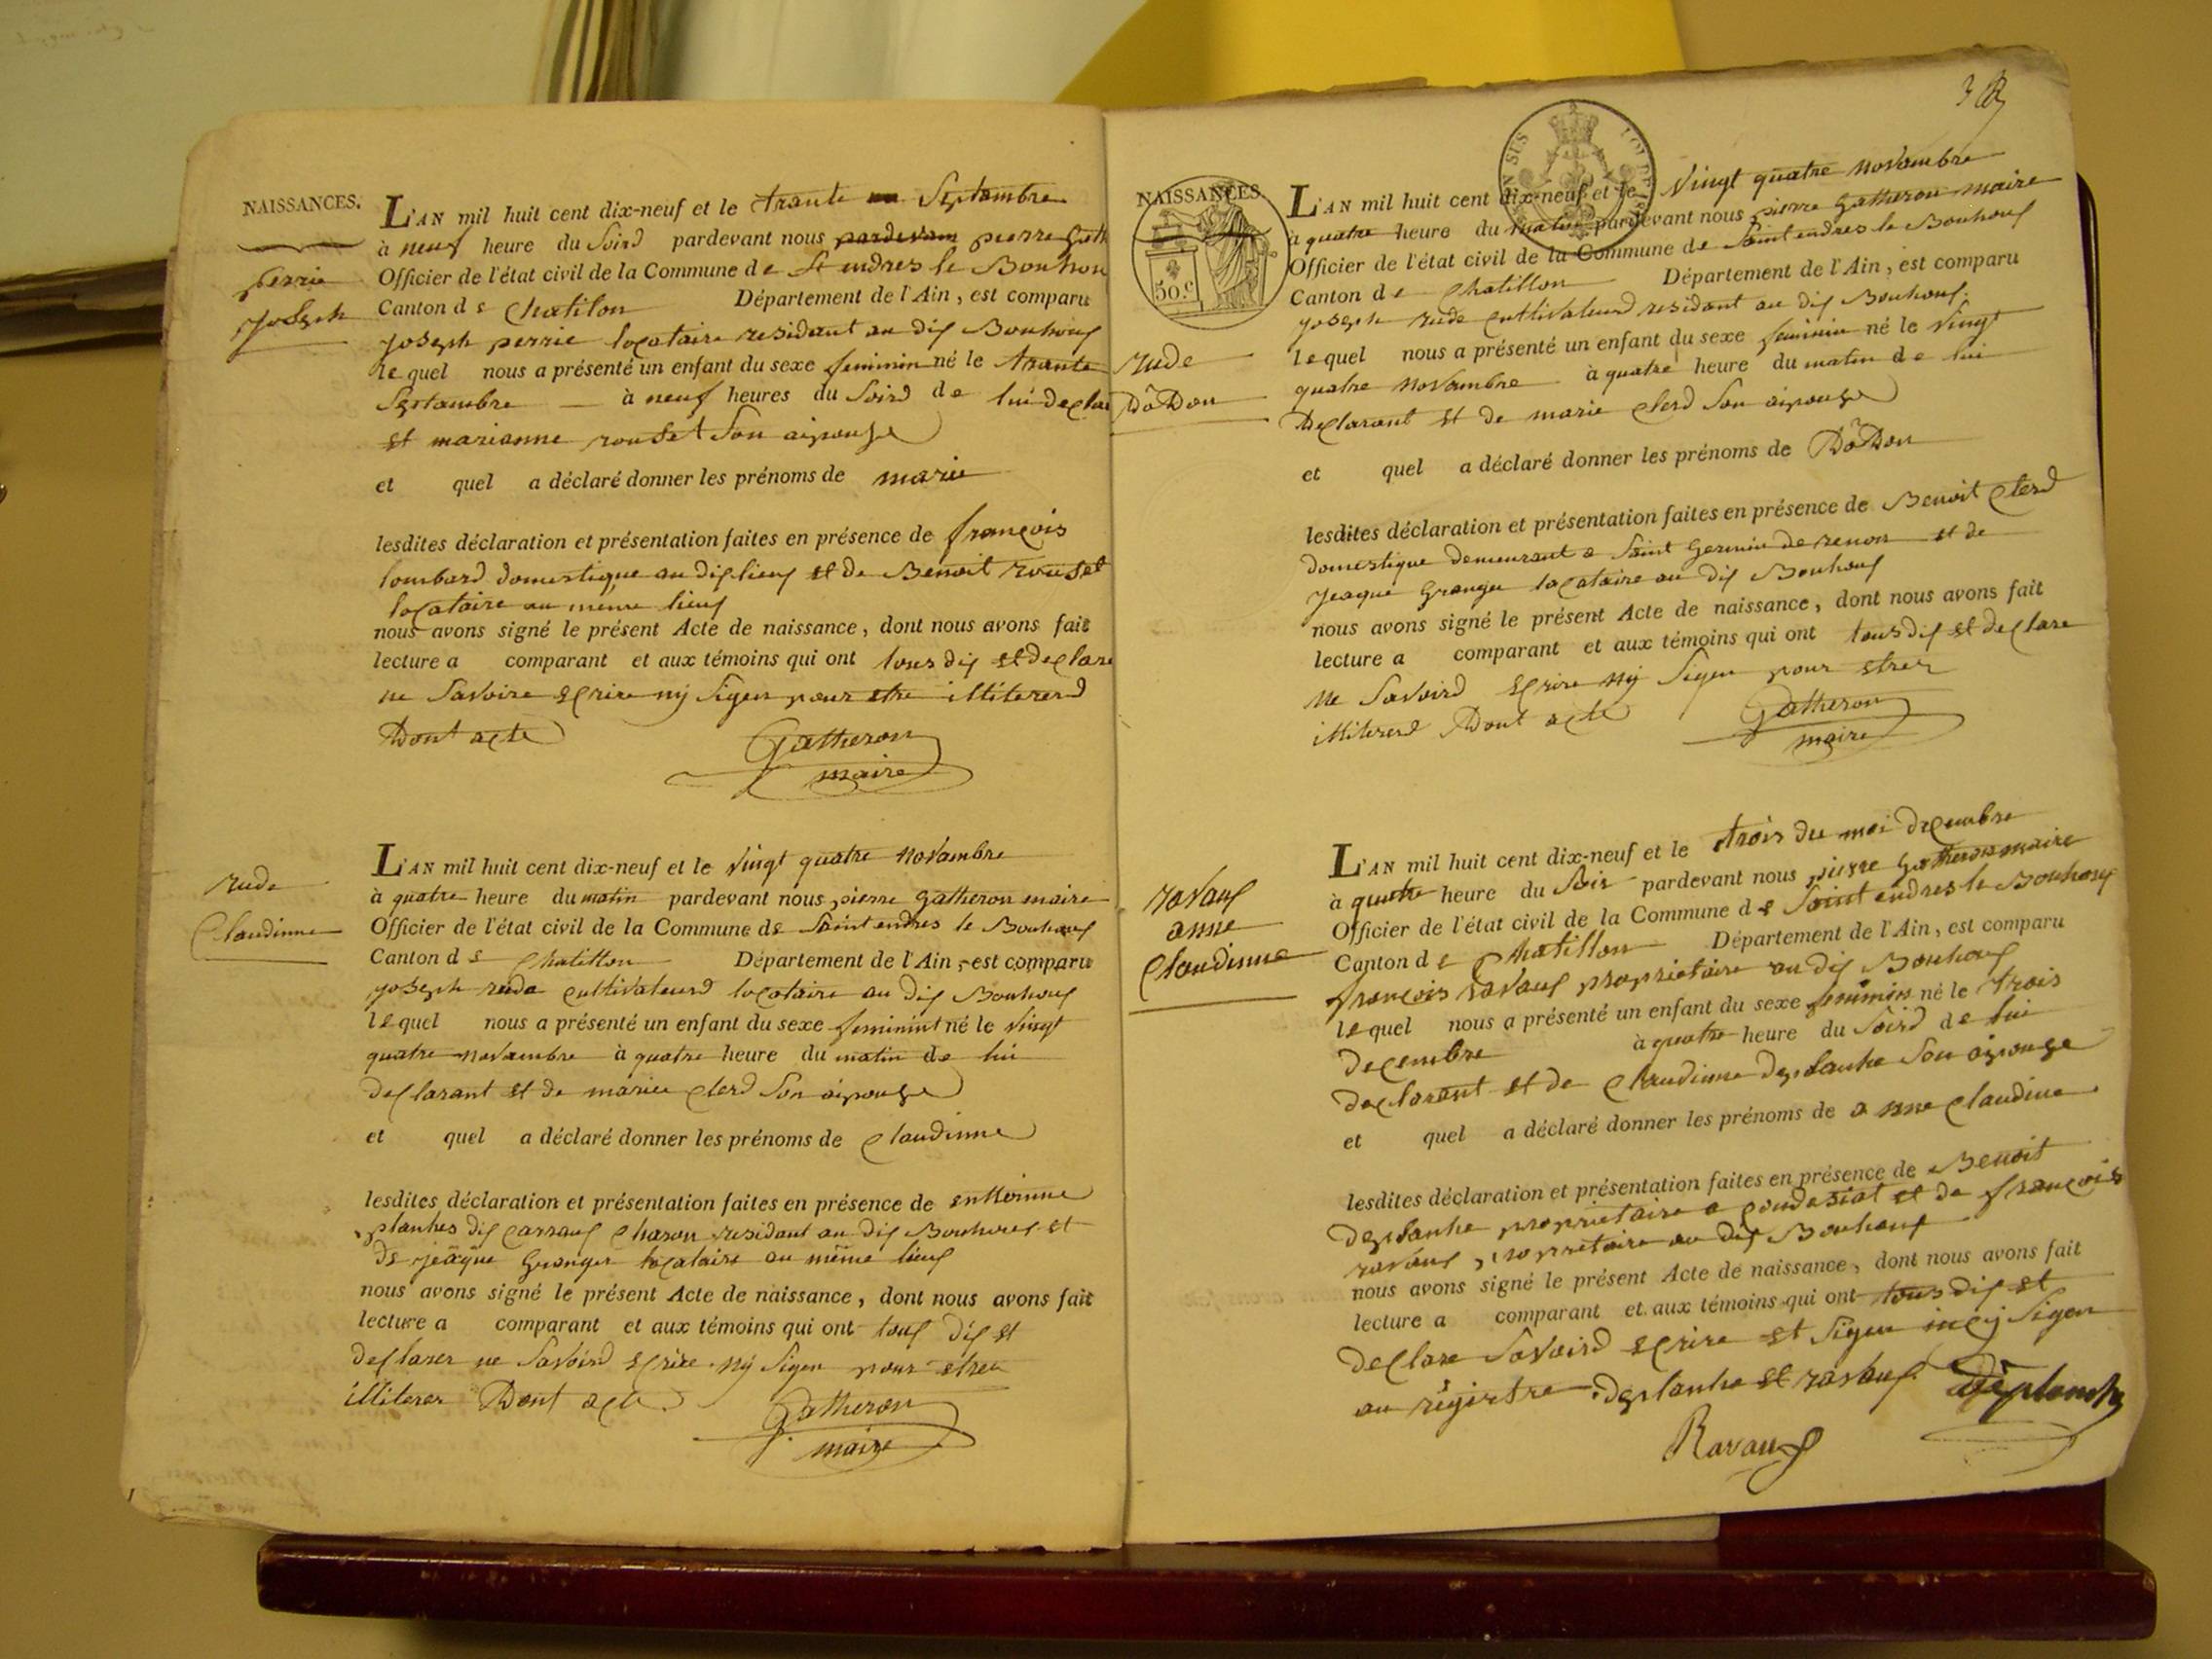 NAISSANCES.
perrie
joseph
L'AN mil huit cent dix-neuf et le trante Septambre
à neuf heure du Soird pardevant nous pardevam pierre Gath
Officier de l'état civil de la Commune de St endres le Bouhou
Canton de Chatilon Département de l'Ain, est comparu
joseph perrie locataire residant au dis Bouhous
lequel nous a présenté un enfant du sexe feminin né le trante
Septambre — à neuf heures du Soird de lui declar
et marianne rouset Son aipouse
et quel a déclaré donner les prénoms de marie
lesdites déclaration et présentation faites en présence de françois
lombard domestique au dis lieus et de Benoit rouset
locataire au même lieus
nous avons signé le présent Acte de naissance, dont nous avons fait
lecture a comparant et aux témoins qui ont tous dis et declare
ne Savoire ecrire ny Signer pour etre illitererd
Dont acte
Gatheron
maire
rude
Claudinne
L'AN mil huit cent dix-neuf et le vingt quatre novambre
à quatre heure du matin pardevant nous pierre gatheron maire
Officier de l'état civil de la Commune de Saint endres le Bouhous
Canton de Chatillon Département de l'Ain, est comparu
joseph rude cultivateurd locataire au dis Bouhous
lequel nous a présenté un enfant du sexe feminint né le vingt
quatre novambre à quatre heure du matin de lui
declarant et de marie clerd Son aipouse
et quel a déclaré donner les prénoms de claudinne
lesdites déclaration et présentation faites en présence de enttoinne
planhes dis carraus charon residant au dis Bouhous et
de jeaque Granger locataire au même lieus
nous avons signé le présent Acte de naissance, dont nous avons fait
lecture a comparant et aux témoins qui ont tous dis et
declarer ne Savoird ecrire ny Signer pour etrer
illiterer Dont acte
Gatheron
maire
NAISSANCES.
50.c
rude
DoDon
L'AN mil huit cent dix-neuf et le vingt quatre novambre
à quatre heure du matin pardevant nous pierre Gatheron maire
Officier de l'état civil de la Commune de Saint endres le Bouhous
Canton de Chatillon Département de l'Ain, est comparu
joseph rude cultivateurd residant au dis Bouhous
lequel nous a présenté un enfant du sexe feminin né le vingt
quatre novambre à quatre heure du matin de lui
Declarant et de marie clerd Son aipouse
et quel a déclaré donner les prénoms de DoDon
lesdites déclaration et présentation faites en présence de Benoit clerd
domestique demeurant a Saint Germin de renon et de
jeaque Granger locataire au dis Bouhous
nous avons signé le présent Acte de naissance, dont nous avons fait
lecture a comparant et aux témoins qui ont tous dis et declare
ne Savoird ecrire ny Signer pour etrer
illitererd Dont acte
Gatheron
maire
ravaus
anne
claudinne
L'AN mil huit cent dix-neuf et le trois du moi decembre
à quatre heure du Soir pardevant nous pierre Gatheron maire
Officier de l'état civil de la Commune de Saint endres le Bouhous
Canton de Chatillon Département de l'Ain, est comparu
françois ravaus proprietaire au dis Bouhous
lequel nous a présenté un enfant du sexe feminin né le trois
decembre à quatre heure du Soird de lui
declarant et de claudinne deplanhe Son aipouse
et quel a déclaré donner les prénoms de anne claudine
lesdites déclaration et présentation faites en présence de Benoit
deplanhe proprietaire a condesiat et de françois
ravaus proprietaire au dis Bouhous
nous avons signé le présent Acte de naissance, dont nous avons fait
lecture a comparant et aux témoins qui ont tous dis et
declare Savoird ecrire et Signer Signer
au registre deplanhe et ravaus Deplanche
Ravaus